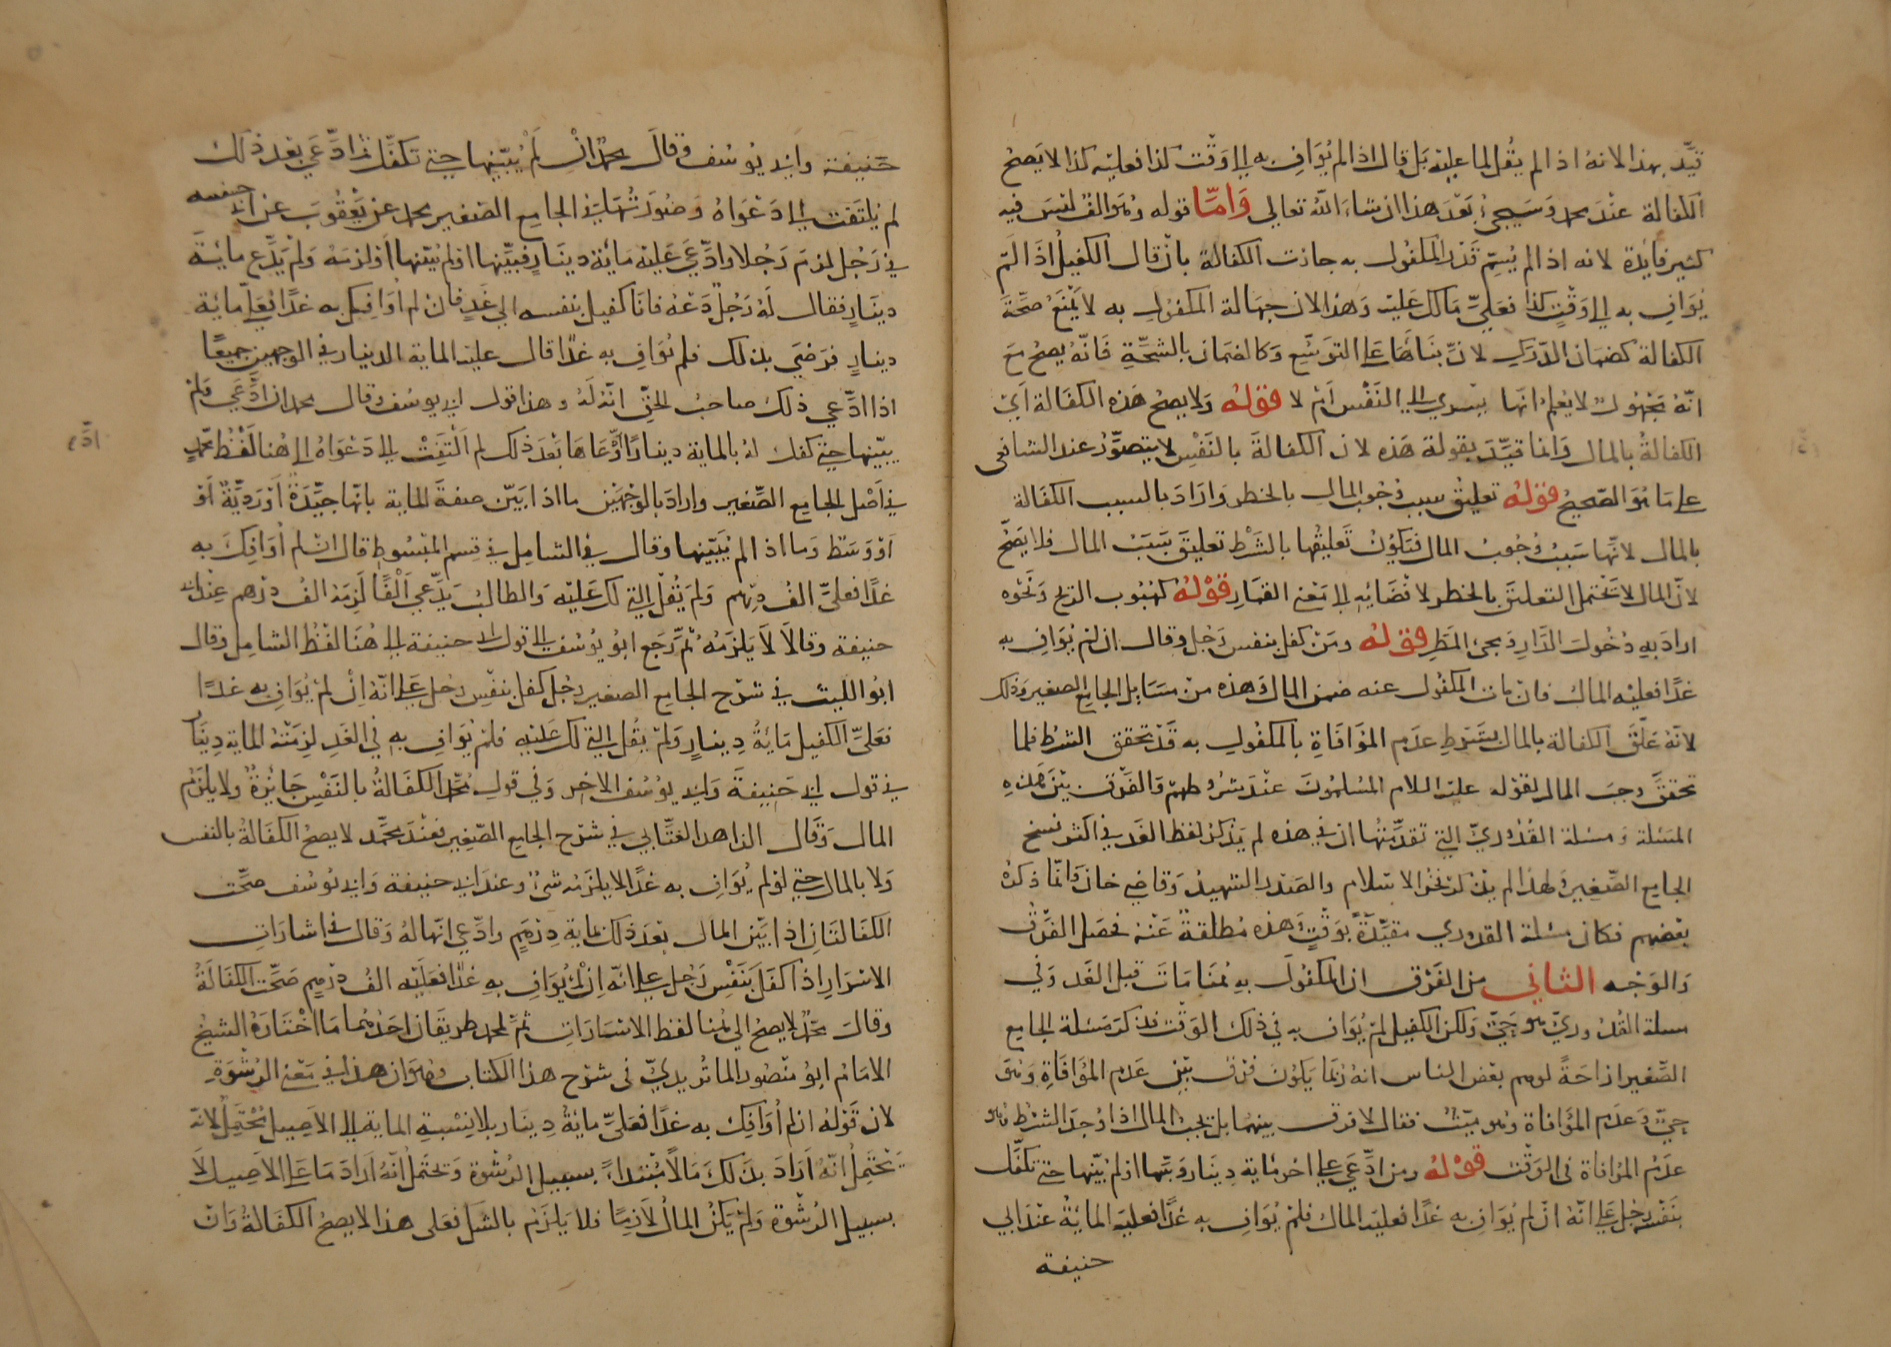 قيّد بهذا لانه اذا لم يقل لما عليه بل قال اذا لم يواف به الى وقت كذا فعليه كذا لا يصح
الكفالة عند محمد وسيجيء بعد هذا ان شاء الله تعالى وامّا قوله وهو الف ليس فيه
كثير فايدة لانه اذا لم يسم قدر المكفول به جازت الكفالة بان قال الكفيل اذا لم
يواف به الى وقت كذا فعليّ مالك عليه وهذا لان جهالة المكفول به لا يمنع صحة
الكفالة كضمان الدرك لان بناها على التوسّع وكالضمان بالشجّة فانه يصح مع
انه مجهول لا يعلم انها يسري الى النفس ام لا قوله ولا يصح هذه الكفالة اي
الكفالة بالمال وانما قيّد بقوله هذه لان الكفالة بالنفس لا يتصوّر عند الشافعي
على ما هو الصحيح قوله تعليق سبب وجوب المال بالخطر واراد بالسبب الكفالة
بالمال لانها سبب وجوب المال فتكون تعليقها بالشرط تعليق سبب المال فلا يصح
لان المال لا يحتمل التعليق بالخطر لافضائه الى معنى القمار قوله كهبوب الريح ونحوه
اراد به دخول الدار ومجئ المطر قوله ومن كفل بنفس رجل وقال ان لم يواف به
غدًا فعليه المال فان مات المكفول عنه ضمن المال وهذه من مسايل الجامع الصغير وذلك
لانه علّق الكفالة بالمال بشرط عدم الموافاة بالمكفول به قد تحقق الشرط فلما
تحقق وجب المال لقوله عليه السلام المسلمون عند شروطهم والفرق بين هذه
المسئلة ومسئلة القدوري التي تقدمتها ان في هذه لم يذكر لفظ الغد في اكثر نسخ
الجامع الصغير ولهذا لم يذكر فخر الاسلام والصدر الشهيد وقاضي خان وانما ذكره
بعضهم فكان مسئلة القدوري مقيّدة بوقت وهذه مطلقة عنه فحصل الفرق
والوجه الثاني من الفرق ان المكفول به هنا مات قبل الغد وفي
مسئلة القدوري هو حيّ ولكن الكفيل لم يواف به في ذلك الوقت فذكر مسئلة الجامع
الصغير ازاحةً لوهم بعض الناس انه ربما يكون فرق بين عدم الموافاة وهو
حيّ وعدم الموافاة وهو ميّت فقال لا فرق بينهما بل يجب المال اذا وجد الشرط وهو
عدم الموافاة في الوقت قوله ومن ادّعى على اخر ماية دينار وبيّنها او لم يبيّنها حتى تكفّل
بنفسه رجل على انه ان لم يواف به غدًا فعليه المال فلم يواف به غدًا فعليه الماية عند ابي
حنيفة
حنيفة وابي يوسف وقال محمد ان لم يبيّنها حتى تكفّل ثم ادّعى بعد ذلك
لم يلتفت الى دعواه وصورتها في الجامع الصغير محمد عن يعقوب عن ابي حنيفة
في رجل لزم رجلا وادّعى عليه ماية دينار فبيّنها او لم يبيّنها او لزمه ولم يدّع ماية
دينار فقال له رجل دعه فانا كفيل بنفسه الى غد فان لم اوافك به غدًا فعليّ ماية
دينار فرضي بذلك فلم يواف به غدًا قال عليه الماية الدينار في الوجهين جميعًا
اذا ادّعى ذلك صاحب الحق انه له وهذا قول ابي يوسف وقال محمد ان ادّعى ولم
يبيّنها حتى كفل له بالماية دينار ادّعاها بعد ذلك لم التفت الى دعواه الى هنا لفظ محمد
ادّع
في اصل الجامع الصغير واراد بالوجهين ما اذا بيّن صفة الماية بانها جيّدة او رديّة او
او وسط وما اذا لم يبيّنها وقال في الشامل في قسم المبسوط قال ان لم اوافك به
غدًا فعليّ الف درهم ولم يقل التي لك عليه والطالب يدّعي الفًا لزمه الف درهم عند ابي
حنيفة وقالا لا يلزمه ثم رجع ابو يوسف الى قول ابي حنيفة الى هنا لفظ الشامل وقال
ابو الليث في شرح الجامع الصغير رجل كفل بنفس رجل على انه ان لم يواف به غدًا
فعليّ الكفيل ماية دينار ولم يقل التي لك عليه فلم يواف به في الغد لزمته الماية دينار
في قول ابي حنيفة وابي يوسف الاخر وفي قول محمد الكفالة بالنفس جايزة ولا يلزم
المال وقال الزاهد العتابي في شرح الجامع الصغير فعند محمد لا يصح الكفالة بالنفس
ولا بالمال حتى لو لم يواف به غدًا لا يلزمه شيء وعند ابي حنيفة وابي يوسف صحّت
الكفالتان اذا بيّن المال بعد ذلك ماية درهم وادّعى انها له وقال في اشارات
الاسرار اذا كفل بنفس رجل على انه ان لم يواف به غدًا فعليه الف درهم صحّت الكفالة
وقال محمد لا يصح الى هنا لفظ الاشارات ثم لمحمد طريقان احدهما ما اختاره الشيخ
الامام ابو منصور الماتريدي في شرح هذا الكتاب وهو ان هذا في معنى الرشوة
لان قوله ان لم اوافك به غدًا فعليّ ماية دينار بلا نسبة الماية الى الاصيل محتمل لانه
يحتمل انه اراد بذلك مالًا مبتداءً بسبيل الرشوة ويحتمل انه اراد ما على الاصيل لا
بسبيل الرشوة ولم يكن المال لازمًا فلا يلزم بالشك فعلى هذا لا يصح الكفالة وان